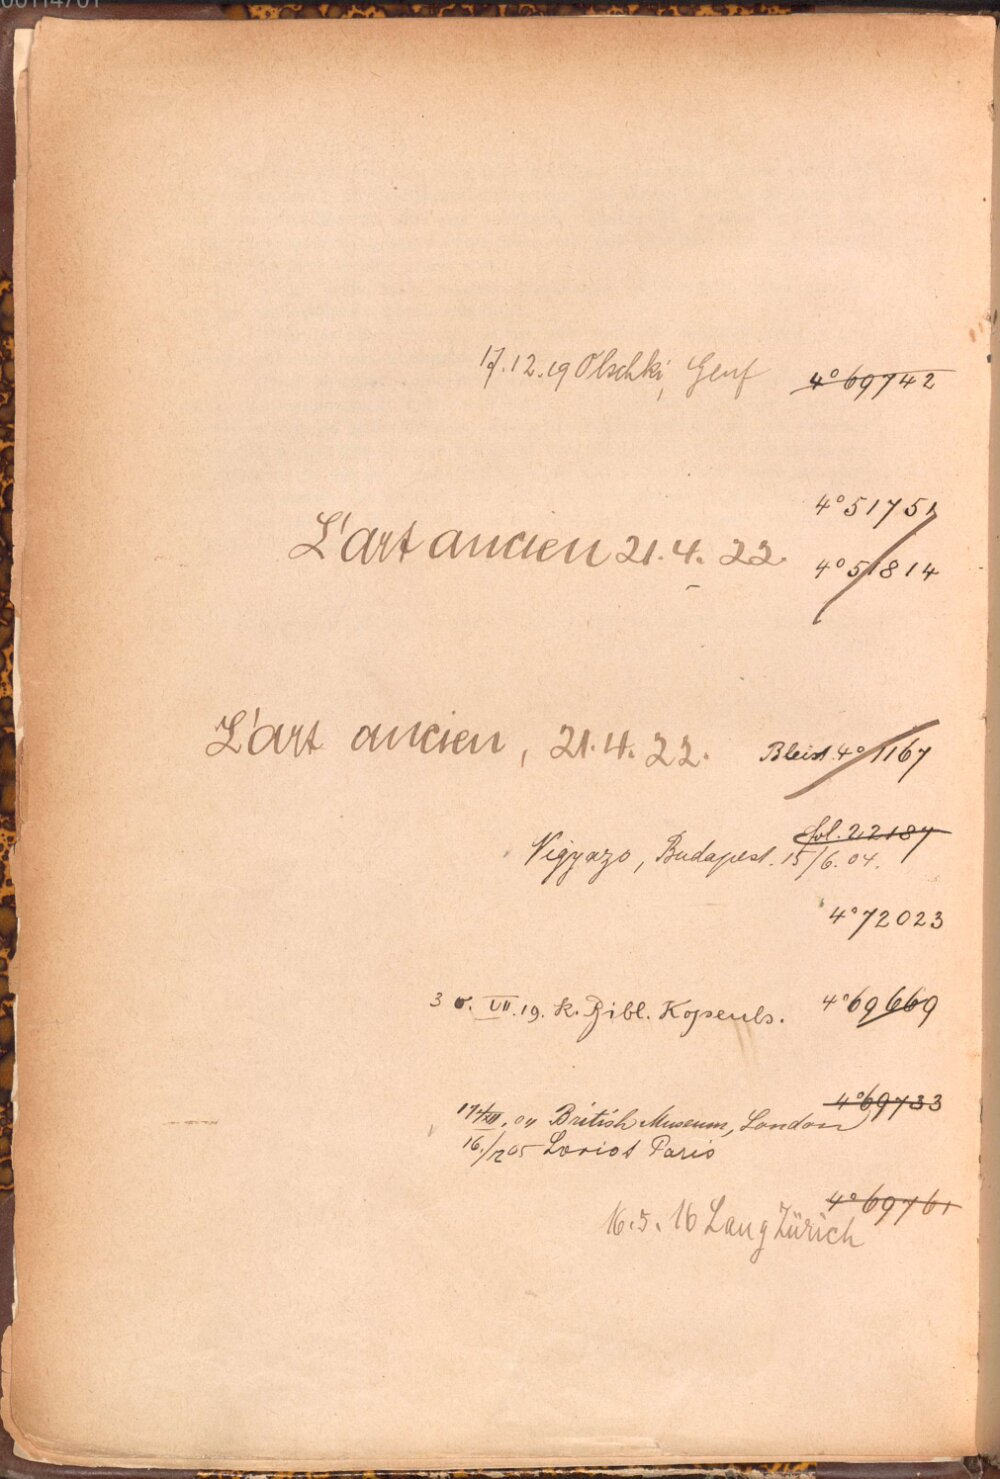 17.12.19 Olschki, Genf 4° 69742
4° 51751
L'art ancien 21.4.22. 4° 51814
L'art ancien, 21.4.22. Bleist. 4° 1167
fol. 22187
Vigyazo, Budapest. 15/6.04.
4° 72023
30. VII.19. k. Bibl. Kopenh. 4° 69669
4° 69733
British Museum, London
Loriot Paris
4° 69761
16.5.16 Lang Zürich